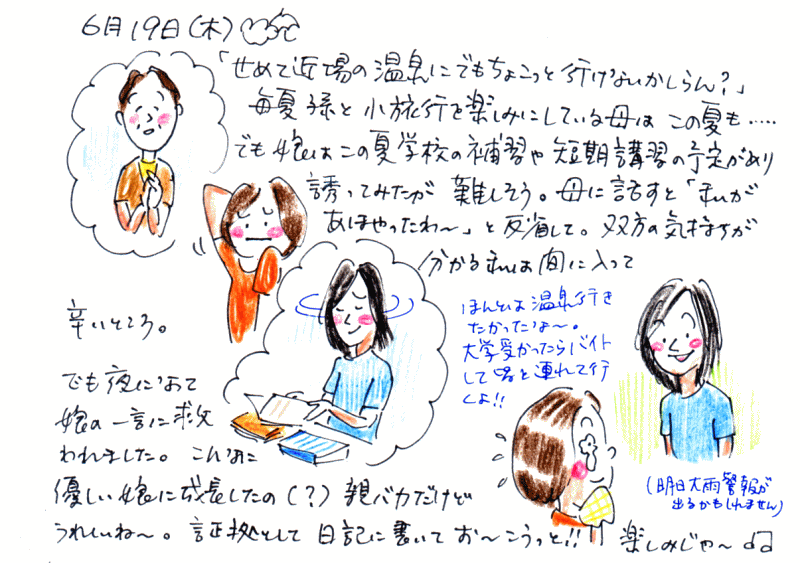 6月19日(木)
「せめて近場の温泉にでもちょこっと行けないかしらん?」
毎夏孫と小旅行を楽しみにしている母はこの夏も……
でも娘はこの夏学校の補習や短期講習の予定があり
誘ってみたが難しそう。母に話すと「私が
あほやったわ〜」と反省して。双方の気持ちが
分かる私は間に入って
辛いところ。
でも夜になって
娘の一言に救
われました。こんなに
優しい娘に成長したの(?)親バカだけど
うれしいね〜。証拠として日記に書いてお〜こうっと!!
ほんとは温泉行き
たかったな〜。
大学受かったらバイト
して皆を連れて行
くよ!!
(明日大雨警報が
出るかもしれません)
楽しみじゃ〜♫